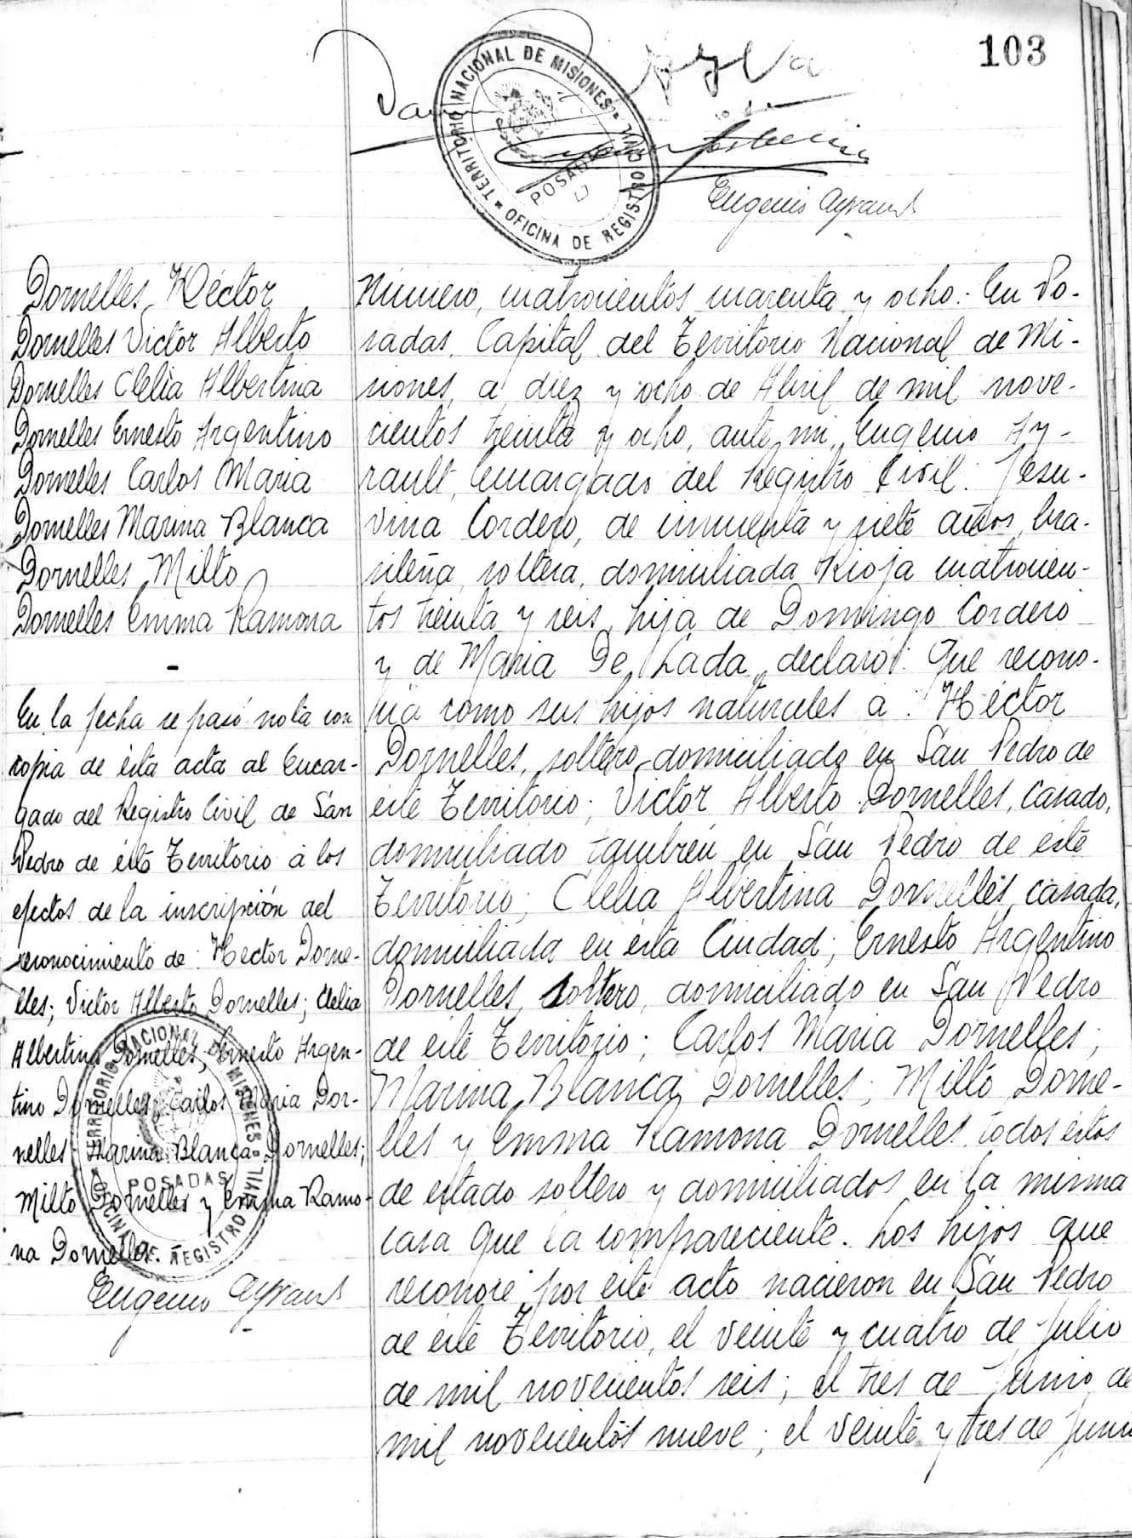 103
TERRITORIO NACIONAL DE MISIONES
OFICINA DE REGISTRO CIVIL
POSADAS
Eugenio Ayrault
Dornelles Héctor
Dornelles Victor Alberto
Dornelles Clelia Albertina
Dornelles Ernesto Argentino
Dornelles Carlos Maria
Dornelles Marina Blanca
Dornelles Milto
Dornelles Emma Ramona
-
En la fecha se pasó nota con
copia de ésta acta al Encar-
gado del Registro Civil de San
Pedro de éste Territorio á los
efectos de la inscripción del
reconocimiento de: Hector Dorne-
lles; Victor Alberto Dornelles; Clelia
Albertina Dornelles; Ernesto Argen-
tino Dornelles; Carlos Maria Dor-
nelles; Marina Blanca Dornelles;
Milto Dornelles y Emma Ramo-
na Dornelles.-
Eugenio Ayrault
TERRITORIO NACIONAL DE MISIONES
OFICINA DE REGISTRO CIVIL
POSADAS
Número, cuatrocientos cuarenta y ocho.- En Po-
sadas, Capital del Territorio Nacional de Mi-
siones, a diez y ocho de Abril de mil nove-
cientos treinta y ocho, ante mi, Eugenio Ay-
rault, Encargado del Registro Civil: Jesu-
vina Cordero, de cincuenta y siete años, bra-
sileña, soltera, domiciliada Rioja cuatrocien-
tos treinta y seis, hija de Domingo Cordero
y de Maria De Lada, declaró: Que recono-
cia como sus hijos naturales a: Héctor
Dornelles, soltero, domiciliado en San Pedro de
éste Territorio; Victor Alberto Dornelles, casado,
domiciliado también en San Pedro de éste
Territorio; Clelia Albertina Dornelles, casada,
domiciliada en esta Ciudad; Ernesto Argentino
Dornelles, soltero, domiciliado en San Pedro
de éste Territorio; Carlos Maria Dornelles;
Marina Blanca Dornelles; Milto Dorne-
lles y Emma Ramona Dornelles todos éstos
de estado soltero y domiciliados en la misma
casa que la compareciente. Los hijos que
reconoce por este acto nacieron en San Pedro
de éste Territorio, el veinte y cuatro de Julio
de mil novecientos seis; el tres de Junio de
mil novecientos nueve; el veinte y tres de Juni